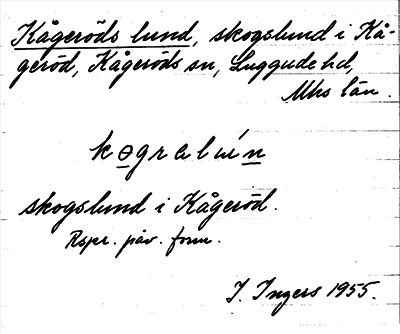 Kågeröds lund, skogslund i Kå-
geröd, Kågeröds sn, Luggude hd,
Mhs län.
skogslund i Kågeröd.
Rspr. påv. form.
I. Ingers 1955.